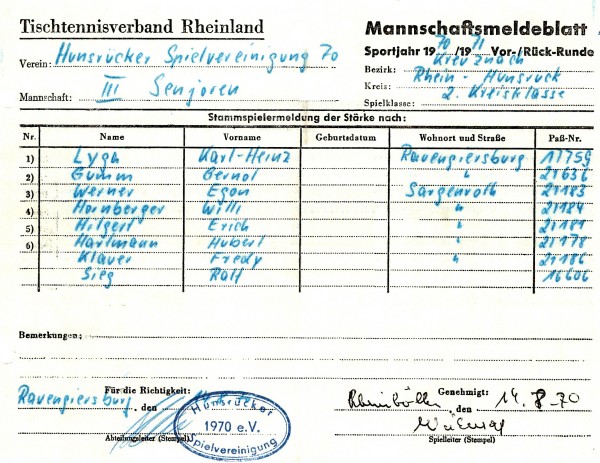 Tischtennisverband Rheinland
Mannschaftsmeldeblatt
Sportjahr 1970/1971 Vor-/Rück-Runde
Verein: Hunsrücker Spielvereinigung 70
Bezirk: Kreuznach
Kreis: Rhein-Hunsrück
Mannschaft: III Senjoren
Spielklasse: 2. Kreisklasse
Stammspielermeldung der Stärke nach:
Nr. Name Vorname Geburtsdatum Wohnort und Straße Paß-Nr.
1) Lygh Karl-Heinz Ravengiersburg 11759
2) Gumm Bernd " 21636
3) Werner Egon Sargenroth 21183
4) Hornberger Willi " 21184
5) Hilgert Erich " 21181
6) Hartmann Hubert " 21178
Klauer Fredy " 21186
Sieg Ralf 16606
Bemerkungen:
Für die Richtigkeit:
Genehmigt:
Ravengiersburg, den
Rheinböllen den 14.8.70
Hunsrücker
1970 e.V.
Spielvereinigung
Abteilungsleiter (Stempel)
Spielleiter (Stempel)